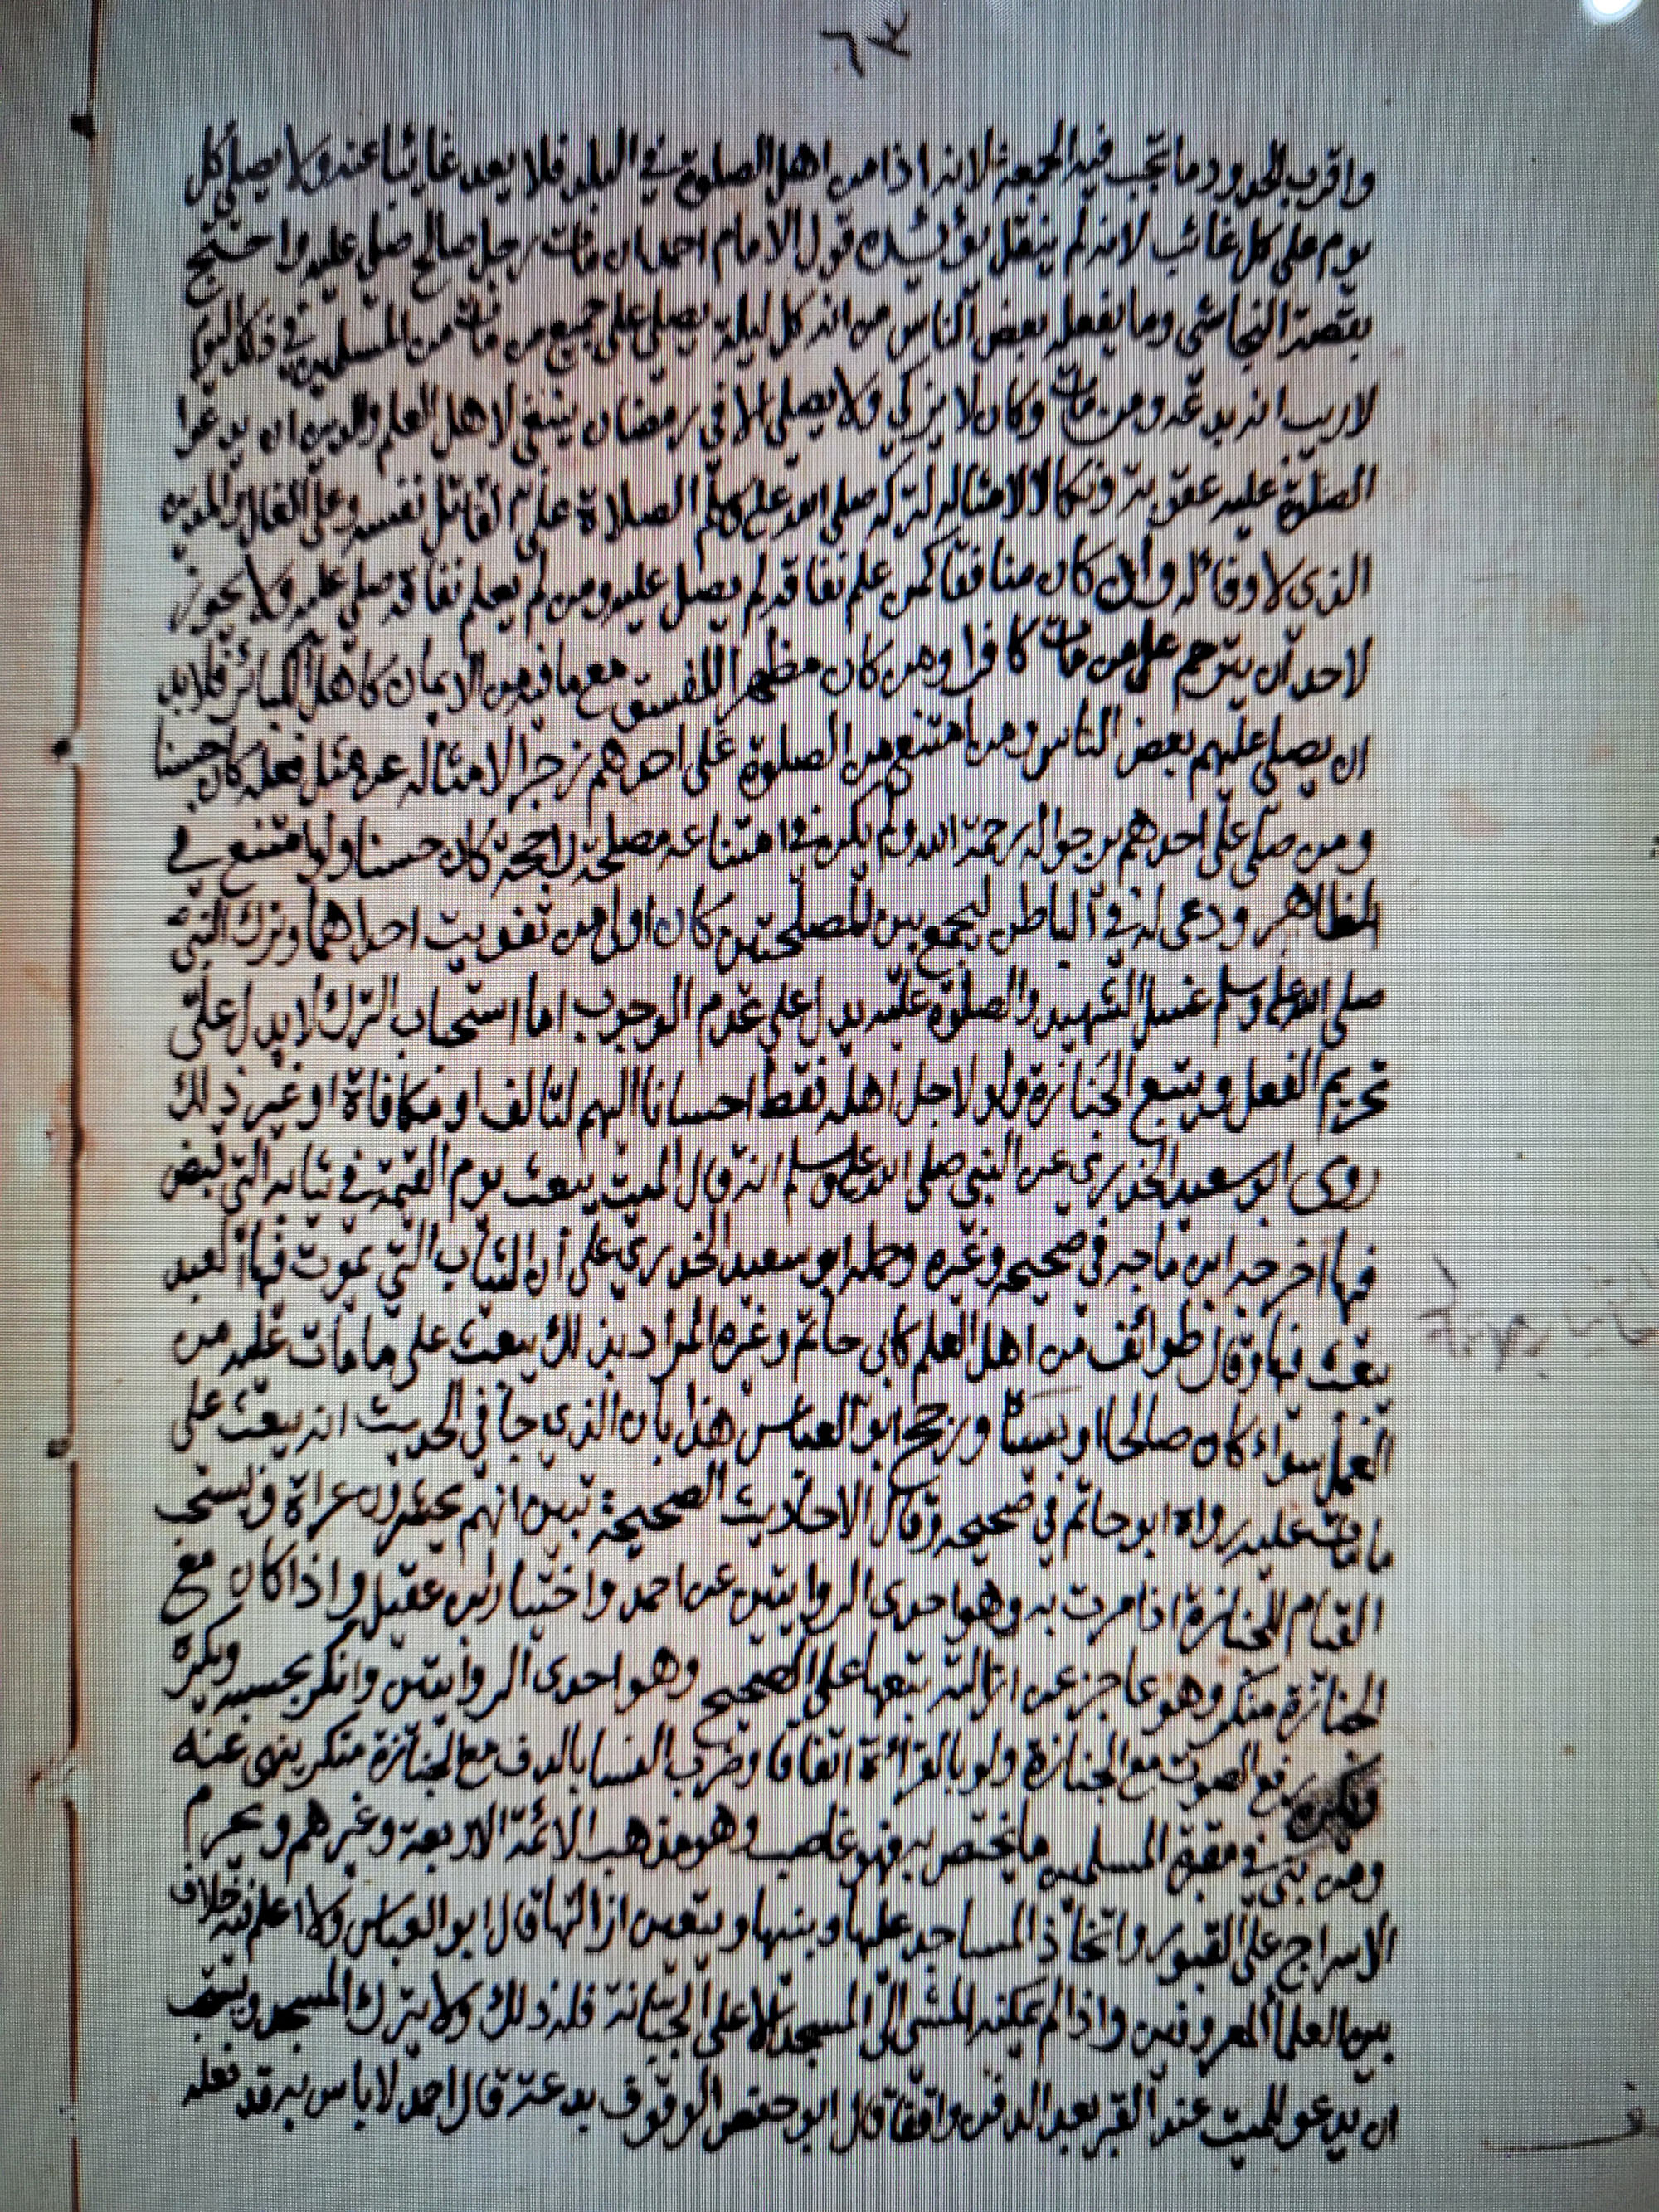 ٦٢
واقرب الحدود ما تجب فيه الجمعة لانه اذا من اهل الصلوة في البلد فلا يعد غائبا عنه ولا يصلي كل
يوم على كل غائب لانه لم ينقل يؤيده قول الامام احمد ان مات رجل صالح صلي عليه واحتج
بقصة النجاشي وما يفعله بعض الناس من انه كل ليلة يصلي على جميع من مات من المسلمين في ذلك اليوم
لاريب انه بدعة ومن مات وكان لا يزكي ولا يصلي الا في رمضان ينبغي لاهل العلم والدين ان يدعوا
الصلوة عليه عقوبة ونكالا لامثاله لتركه صلى الله عليه وسلم الصلاة على القاتل نفسه وعلى الغال والمدين
الذي لا وفا له وان كان منافقا كمن علم نفاقه لم يصل عليه ومن لم يعلم نفاقه صلي عليه ولا يجوز
لاحد ان يترحم على من مات كافرا ومن كان مظهرا للفسق مع ما فيه من الايمان كاهل الكبائر فلا بد
ان يصلي عليهم بعض الناس ومن امتنع من الصلوة على احدهم زجرا لامثاله عن مثل فعله كان حسنا
ومن صلى على احدهم يرجو له رحمة الله ولم يكن في امتناعه مصلحة راجحة كان حسنا ولو امتنع في
الظاهر ودعى له في الباطن ليجمع بين المصلحتين كان اولى من تفويت احداهما وترك النبي
صلى الله عليه وسلم غسل الشهيد والصلوة عليه يدل على عدم الوجوب اما استحباب الترك لا يدل على
تحريم الفعل ويتبع الجنازة ولو لاجل اهله فقط احسانا اليهم لتالف او مكافاة او غير ذلك
روى ابو سعيد الخدري عن النبي صلى الله عليه وسلم انه قال الميت يبعث يوم القيمة في ثيابه التي قبض
فيها اخرجه ابن ماجه في صحيحه وغيره وحمله ابو سعيد الخدري على ان الثياب التي يموت فيها العبد
يبعث فيها وقال طوائف من اهل العلم كابي حاتم وغيره المراد بذلك يبعث على ما مات عليه من
العمل سواء كان صالحا او سيئا ورجح ابو العباس هذا بان الذي جا في الحديث انه يبعث على
ما مات عليه رواه ابو حاتم في صحيحه وقال الاحاديث الصحيحة تبين انهم يحشرون عراة ويستحب
القيام للجنازة اذا مرت به وهو احدى الروايتين عن احمد واختيار ابن عقيل واذا كان مع
الجنازة منكر وهو عاجز عن ازالته تبعها على الصحيح وهو احدى الروايتين وانكر بحسبه ويكره
رفع الصوت مع الجنازة ولو بالقراءة اتفاقا وضرب النسا بالدف مع الجنازة منكر ينهى عنه
ومن بنى في مقبرة المسلمين ما يختص به فهو غاصب وهو مذهب الائمة الاربعة وغيرهم ويحرم
الاسراج على القبور واتخاذ المساجد عليها وبينها ويتعين ازالتها قال ابو العباس ولا اعلم فيه خلاف
بين العلما المعروفين واذا لم يمكنه المشي الى المسجد الا على الجبانة فله ذلك ولا يترك المسجد ويستحب
ان يدعو للميت عند القبر بعد الدفن واقفا قال ابو حفص الوقوف بدعة قال احمد لا باس به قد فعله